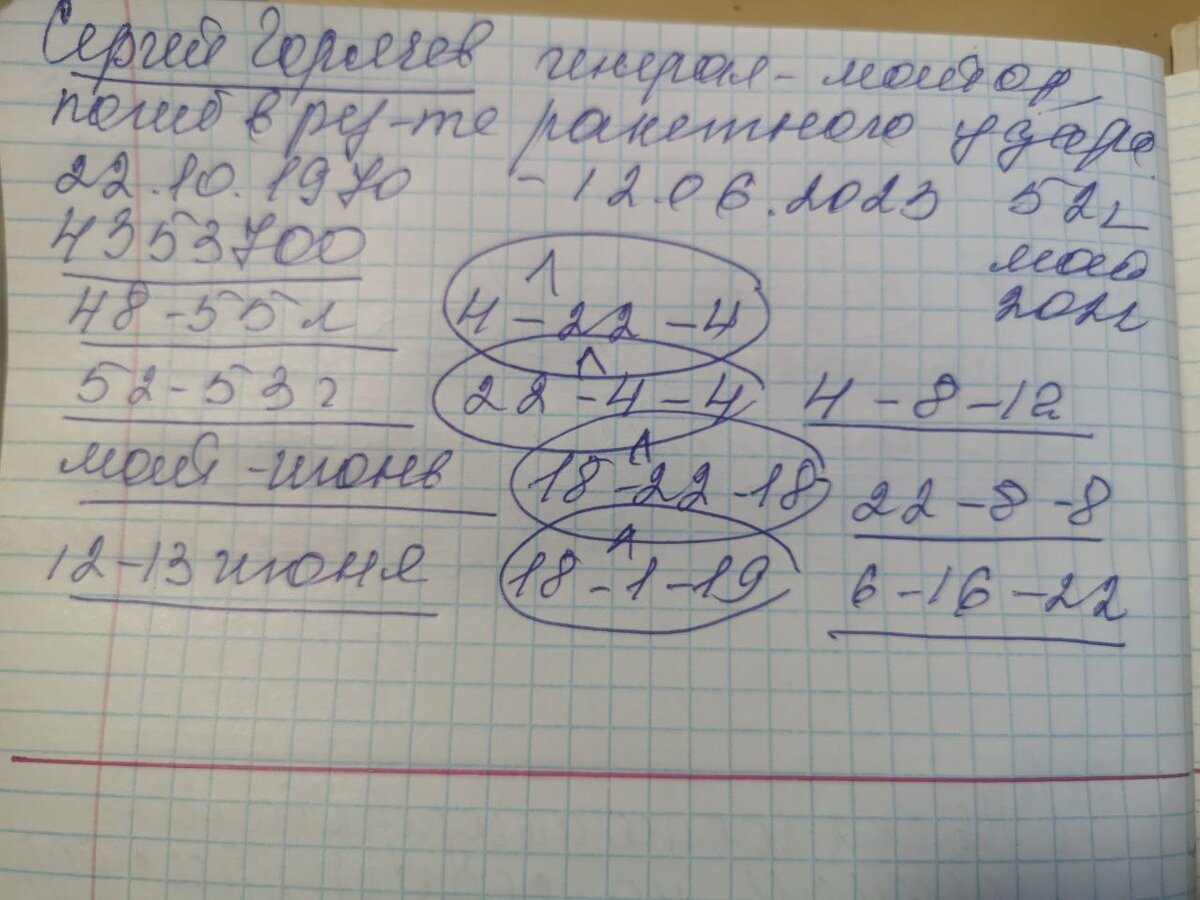 Сергий Горячев генерал-майор
погиб в рез-те ракетного удара
22.10.1970 - 12.06.2023 52г
4353700
май
202г
48-55л
1
4-22-4
52-53г
22-4-4
4-8-12
май-июнь
18-22-18
22-8-8
12-13 июня
18-1-19
6-16-22